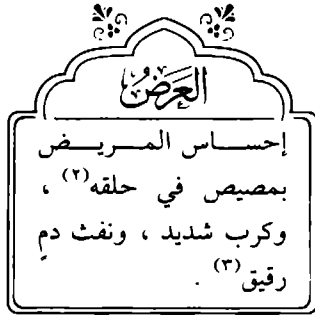 العَرَضُ
إحســـاس المـــريـــض
بمصيص في حلقه(٢) ،
وكرب شديد ، ونفث دمٍ
رقيق(٣) .